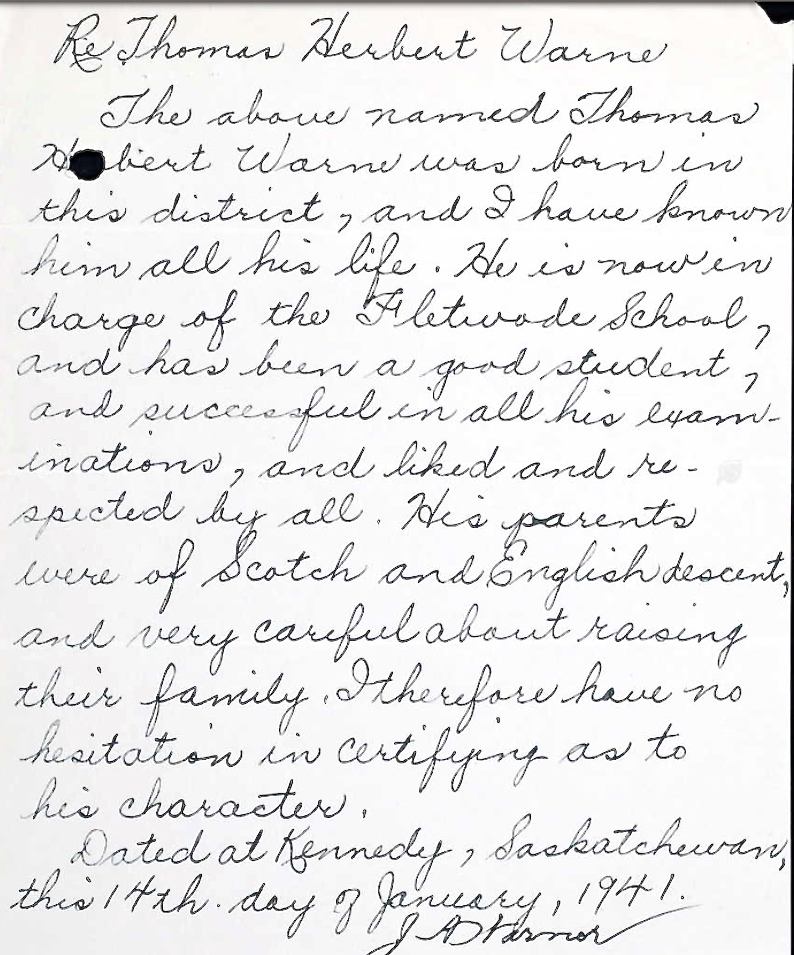 Re Thomas Herbert Warne
The above named Thomas
H bert Warne was born in
this district, and I have known
him all his life. He is now in
charge of the Fletwode School,
and has been a good student,
and successful in all his exam-
inations, and liked and re-
spected by all. His parents
were of Scotch and English descent,
and very careful about raising
their family. I therefore have no
hesitation in certifying as to
his character.
Dated at Kennedy, Saskatchewan,
this 14th. day of January, 1941.